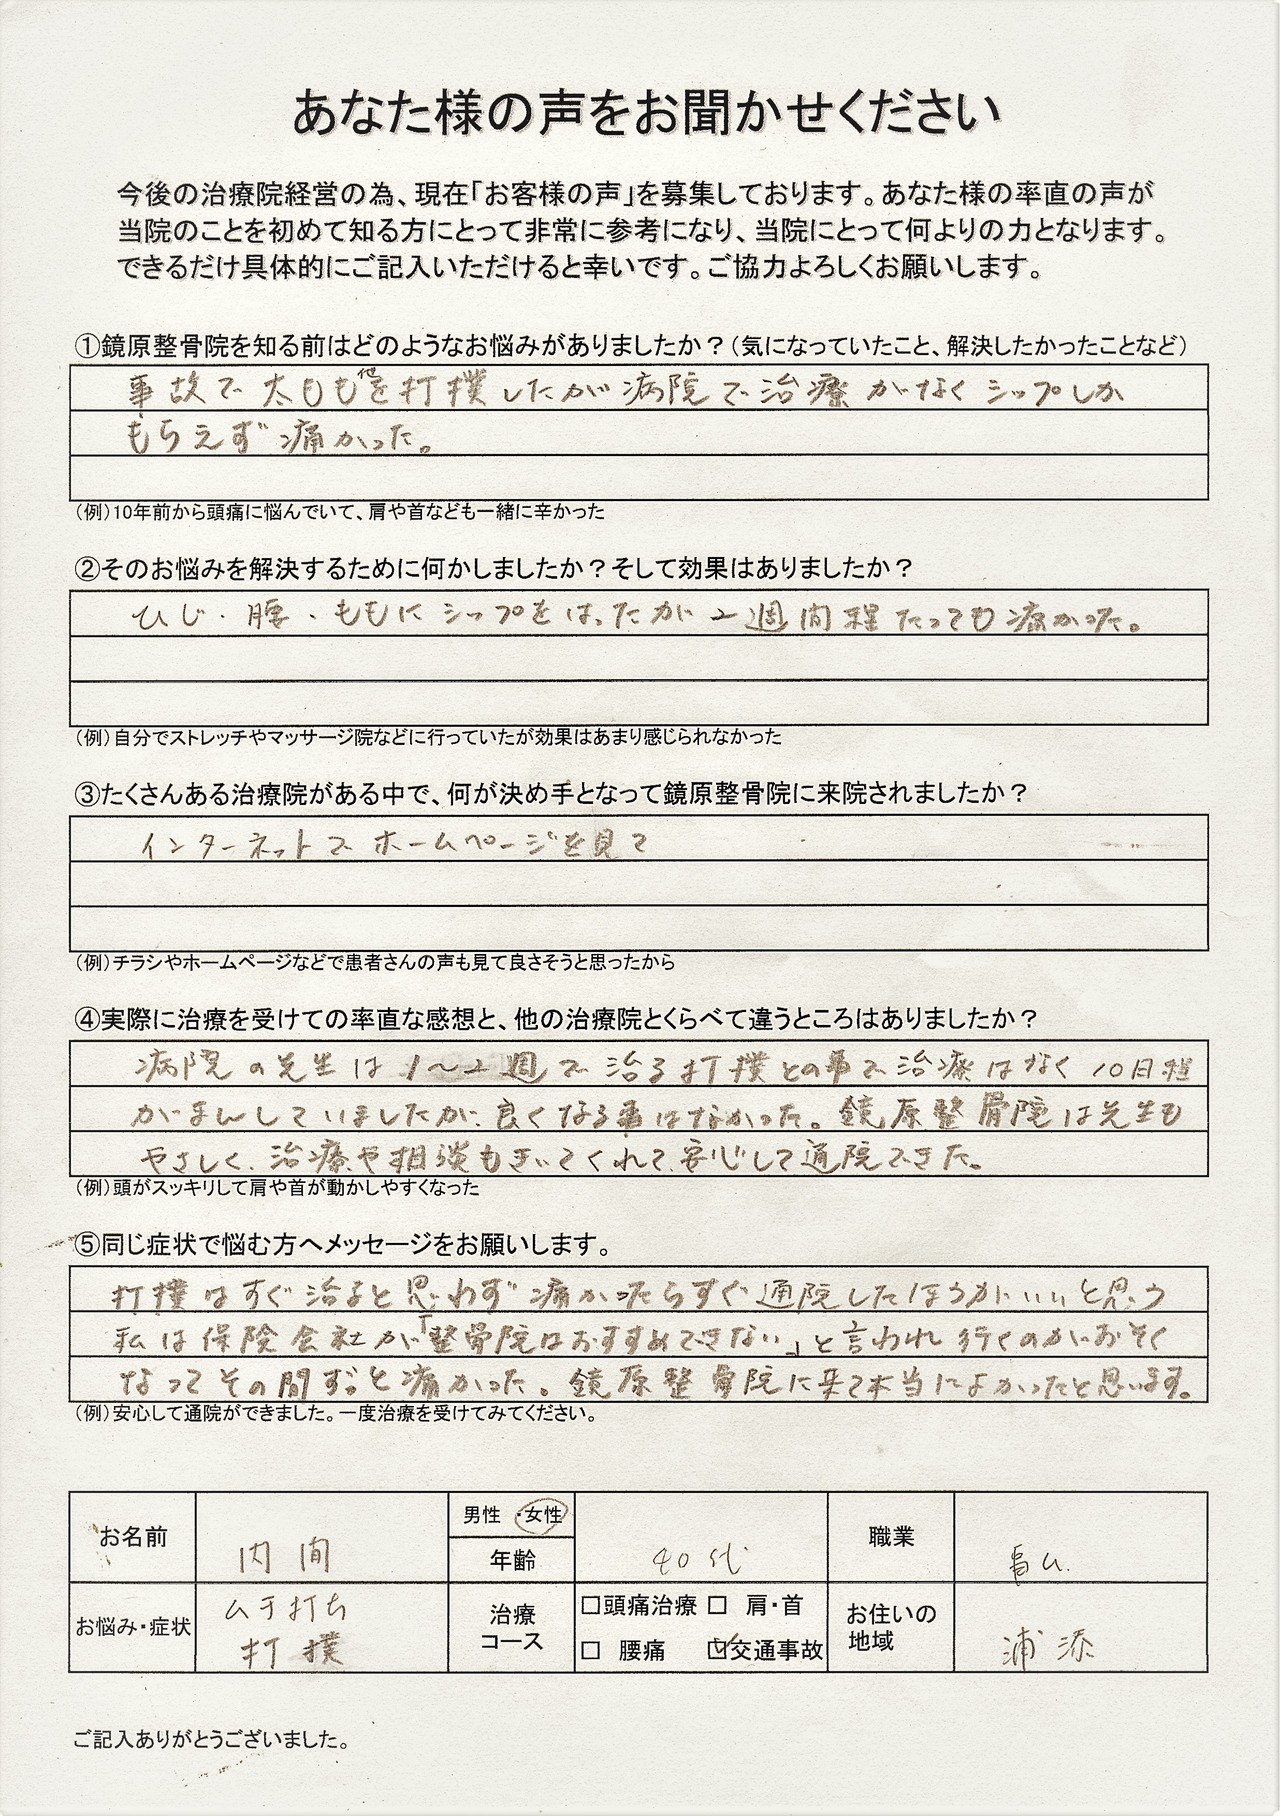 あなた様の声をお聞かせください
今後の治療院経営の為、現在「お客様の声」を募集しております。あなた様の率直の声が
当院のことを初めて知る方にとって非常に参考になり、当院にとって何よりの力となります。
できるだけ具体的にご記入いただけると幸いです。ご協力よろしくお願いします。
①鏡原整骨院を知る前はどのようなお悩みがありましたか？（気になっていたこと、解決したかったことなど）
事故で太もも他を打撲したが病院で治療がなくシップしか
もらえず痛かった。
（例）10年前から頭痛に悩んでいて、肩や首なども一緒に辛かった
②そのお悩みを解決するために何かしましたか？そして効果はありましたか？
ひじ・腰・ももにシップをはったが2週間程たっても痛かった。
（例）自分でストレッチやマッサージ院などに行っていたが効果はあまり感じられなかった
③たくさんある治療院がある中で、何が決め手となって鏡原整骨院に来院されましたか？
インターネットでホームページを見て
（例）チラシやホームページなどで患者さんの声も見て良さそうと思ったから
④実際に治療を受けての率直な感想と、他の治療院とくらべて違うところはありましたか？
病院の先生は1〜2週で治る打撲との事で治療はなく10日程
がまんしていましたが、良くなる事はなかった。鏡原整骨院は先生も
やさしく、治療や相談もきいてくれて、安心して通院できた。
（例）頭がスッキリして肩や首が動かしやすくなった
⑤同じ症状で悩む方へメッセージをお願いします。
打撲はすぐ治ると思わず痛かったらすぐ通院したほうがいいと思う
私は保険会社が「整骨院はおすすめできない」と言われ行くのがおそく
なってその間ずっと痛かった。鏡原整骨院に来て本当によかったと思います。
（例）安心して通院ができました。一度治療を受けてみてください。
お名前 内間 男性・女性 年齢 40代 職業
お悩み・症状 ムチ打ち 打撲 治療コース □頭痛治療 □ 肩・首 □ 腰痛 ☑交通事故 お住いの地域 浦添
ご記入ありがとうございました。